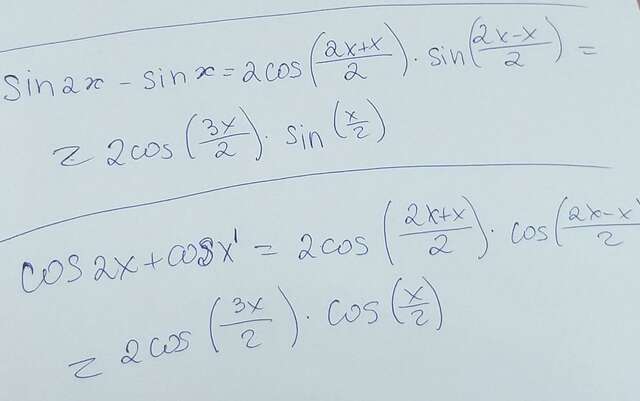 sin2x - sinx = 2cos(\frac{2x+x}{2}) · sin(\frac{2x-x}{2}) =
= 2cos(\frac{3x}{2}) · sin(\frac{x}{2})
cos2x + cosx = 2cos(\frac{2x+x}{2}) · cos(\frac{2x-x}{2}
= 2cos(\frac{3x}{2}) · cos(\frac{x}{2})